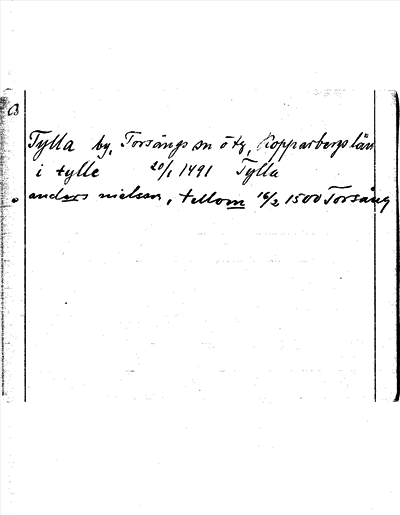 Tylla by, Torsångs sn ö tg, Kopparbergs län
i tylle 20/1 1491 Tylla
anders nielson, tillom 16/2 1500 Torsång